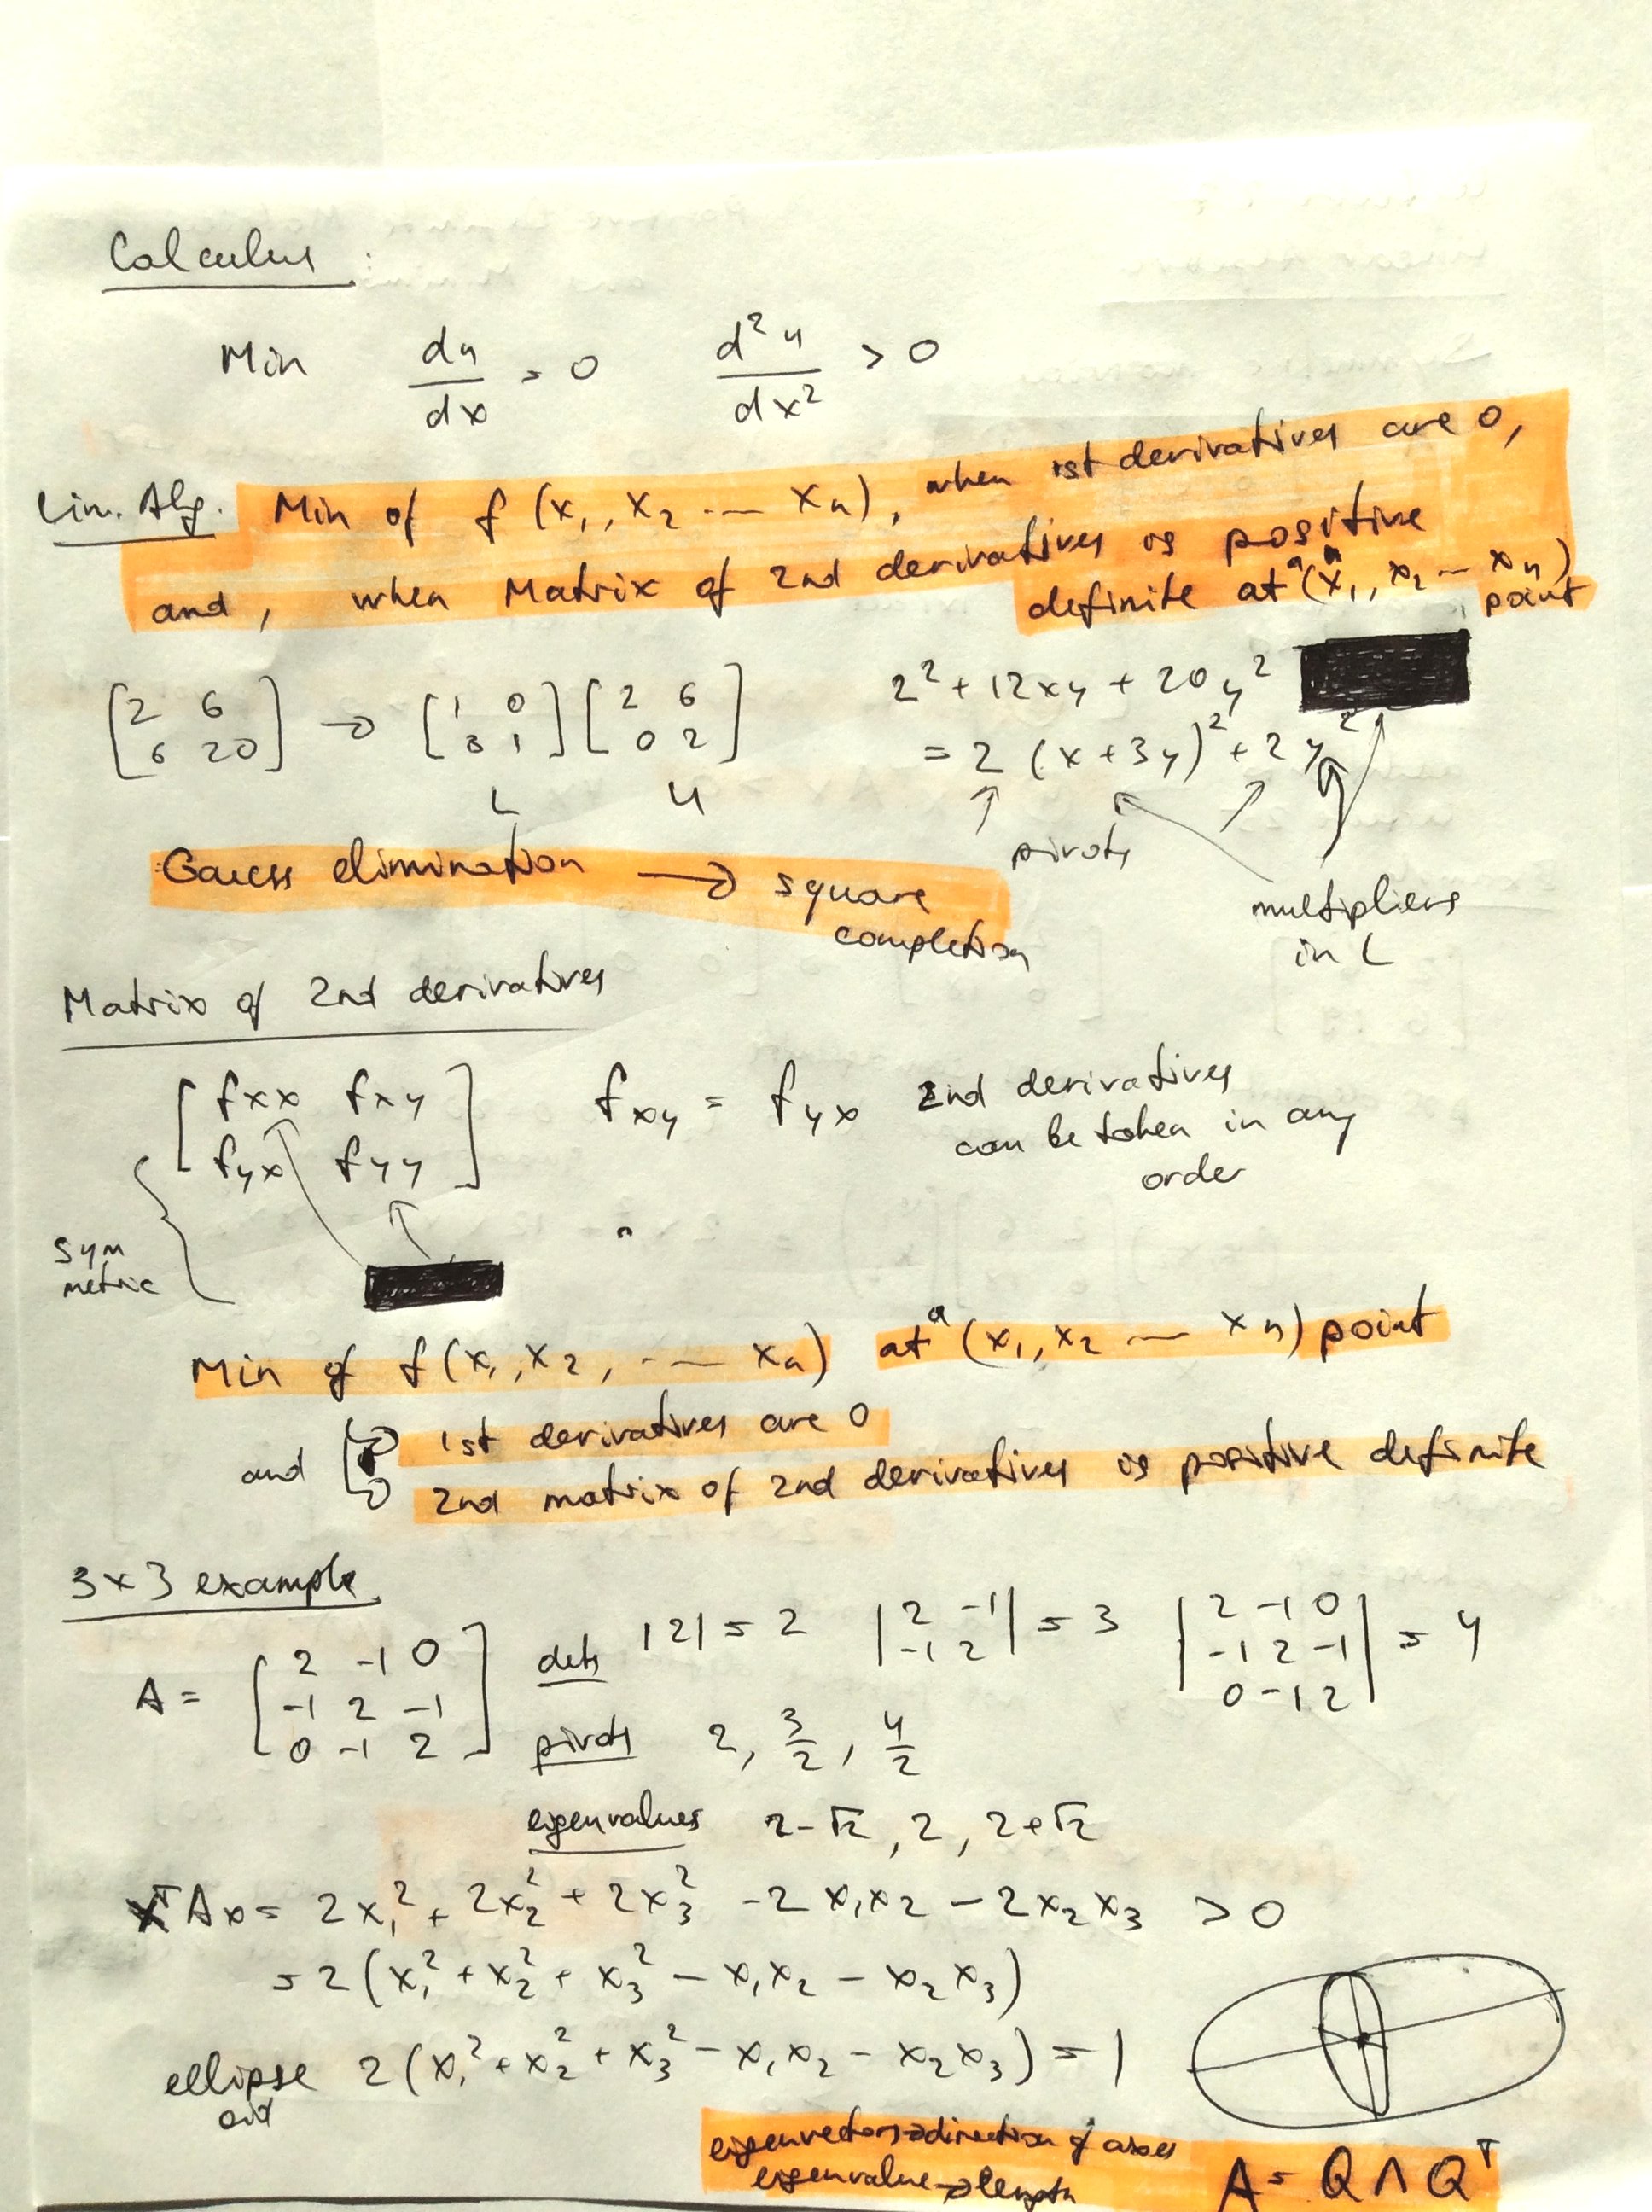 Calculus :
Min dy/dx = 0 d²y/dx² > 0
Lin. Alg. Min of f (x₁, x₂ ... xₙ), when 1st derivatives are 0,
and, when Matrix of 2nd derivatives is positive
definite at a (x₁, x₂ ... xₙ) point
[2 6; 6 20] → [1 0; 3 1] [2 6; 0 2] 2² + 12xy + 20y²
= 2 (x + 3y)² + 2y²
L U
pivots
multipliers
in L
Gauss elimination → square
completion
Matrix of 2nd derivatives
[fxx fxy; fyx fyy] fxy = fyx 2nd derivatives
can be taken in any
order
sym
metric
Min of f(x₁, x₂, ... xₙ) at a (x₁, x₂ ... xₙ) point
and 1st derivatives are 0
2nd matrix of 2nd derivatives is positive definite
3x3 example
A = [2 -1 0; -1 2 -1; 0 -1 2] dets |2| = 2 |2 -1; -1 2| = 3 |2 -1 0; -1 2 -1; 0 -1 2| = 4
pivots 2, 3/2, 4/2
eigenvalues 2-√2, 2, 2+√2
xᵀAx = 2x₁² + 2x₂² + 2x₃² - 2x₁x₂ - 2x₂x₃ > 0
= 2(x₁² + x₂² + x₃² - x₁x₂ - x₂x₃)
ellipse 2(x₁² + x₂² + x₃² - x₁x₂ - x₂x₃) = 1
eigenvectors → direction of axes
eigenvalue → length
A = QΛQᵀ